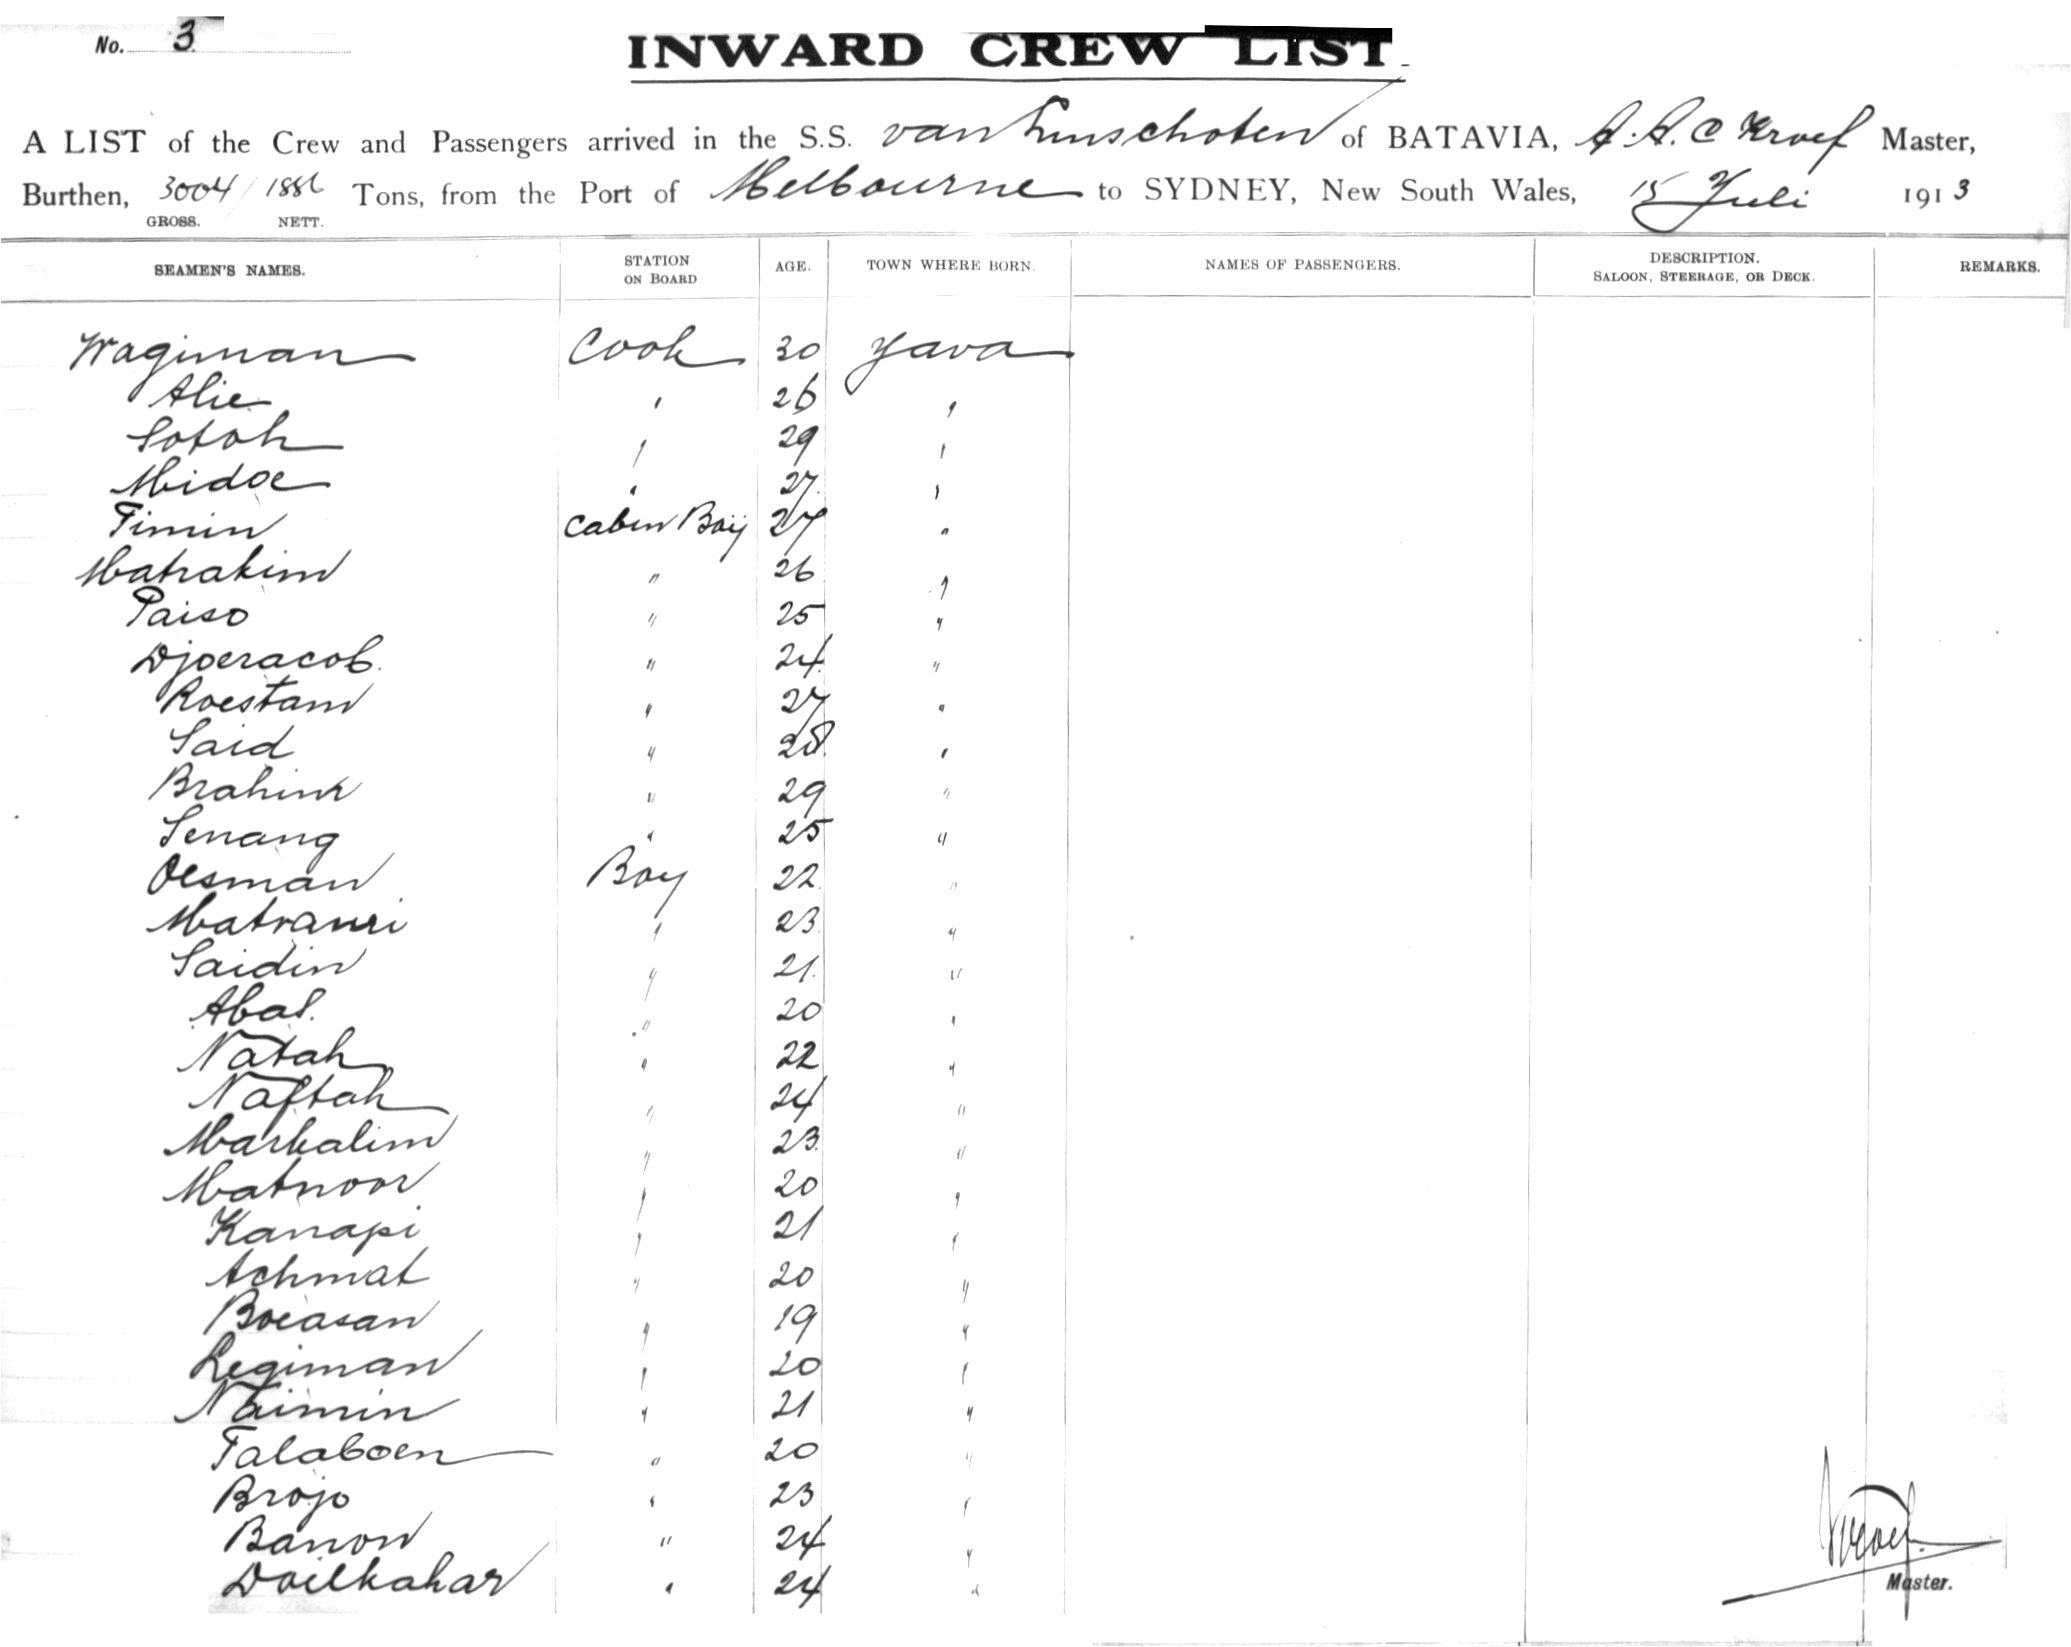 No. 3
INWARD CREW LIST
A LIST of the Crew and Passengers arrived in the S.S. van Linschoten of BATAVIA, A. A. C Kroef Master,
Burthen, 3004 / 1886 Tons, from the Port of Melbourne to SYDNEY, New South Wales, 15 Juli 1913
GROSS. NETT.
SEAMEN'S NAMES. STATION ON BOARD AGE. TOWN WHERE BORN. NAMES OF PASSENGERS. DESCRIPTION. SALOON, STEERAGE, OR DECK. REMARKS.
Wagiman Cook 30 Yava
Alie " 26 "
Sotoh " 29 "
Midoe " 27 "
Timin Cabin Boy 27 "
Matrakim " 26 "
Paiso " 25 "
Djoeracob. " 24 "
Roestam " 27 "
Said " 28 "
Brahim " 29 "
Senang " 25 "
Oesman Boy 22 "
Matransi " 23 "
Saidin " 21 "
Abal. " 20 "
Natah " 22 "
Naftah " 24 "
Markalim " 23 "
Matnoor " 20 "
Kanapi " 21 "
Achmat " 20 "
Boeasan " 19 "
Legiman " 20 "
Naimin " 21 "
Talaboen " 20 "
Brojo " 23 "
Banon " 24 "
Doelkahar " 24 "
Kroef.
Master.